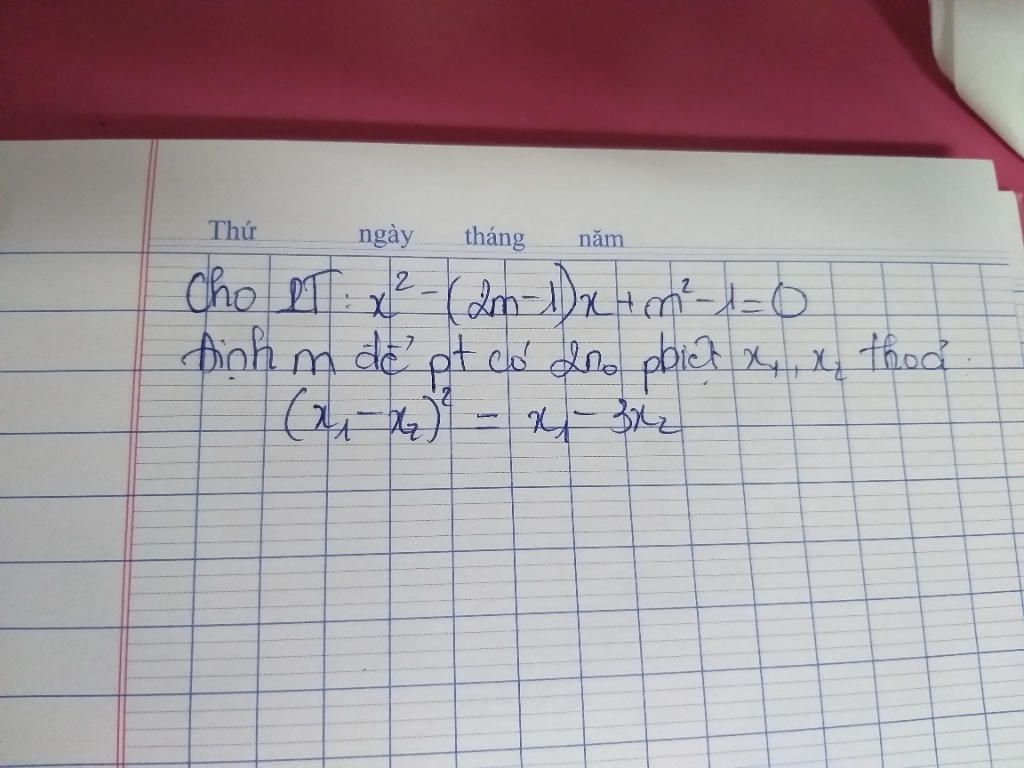 Thứ ngày tháng năm
Cho PT: x² - (2m-1)x + m² - 1 = 0
Định m để pt có 2no pbiệt x₁, x₂ thoả.
(x₁ - x₂)² = x₁ - 3x₂